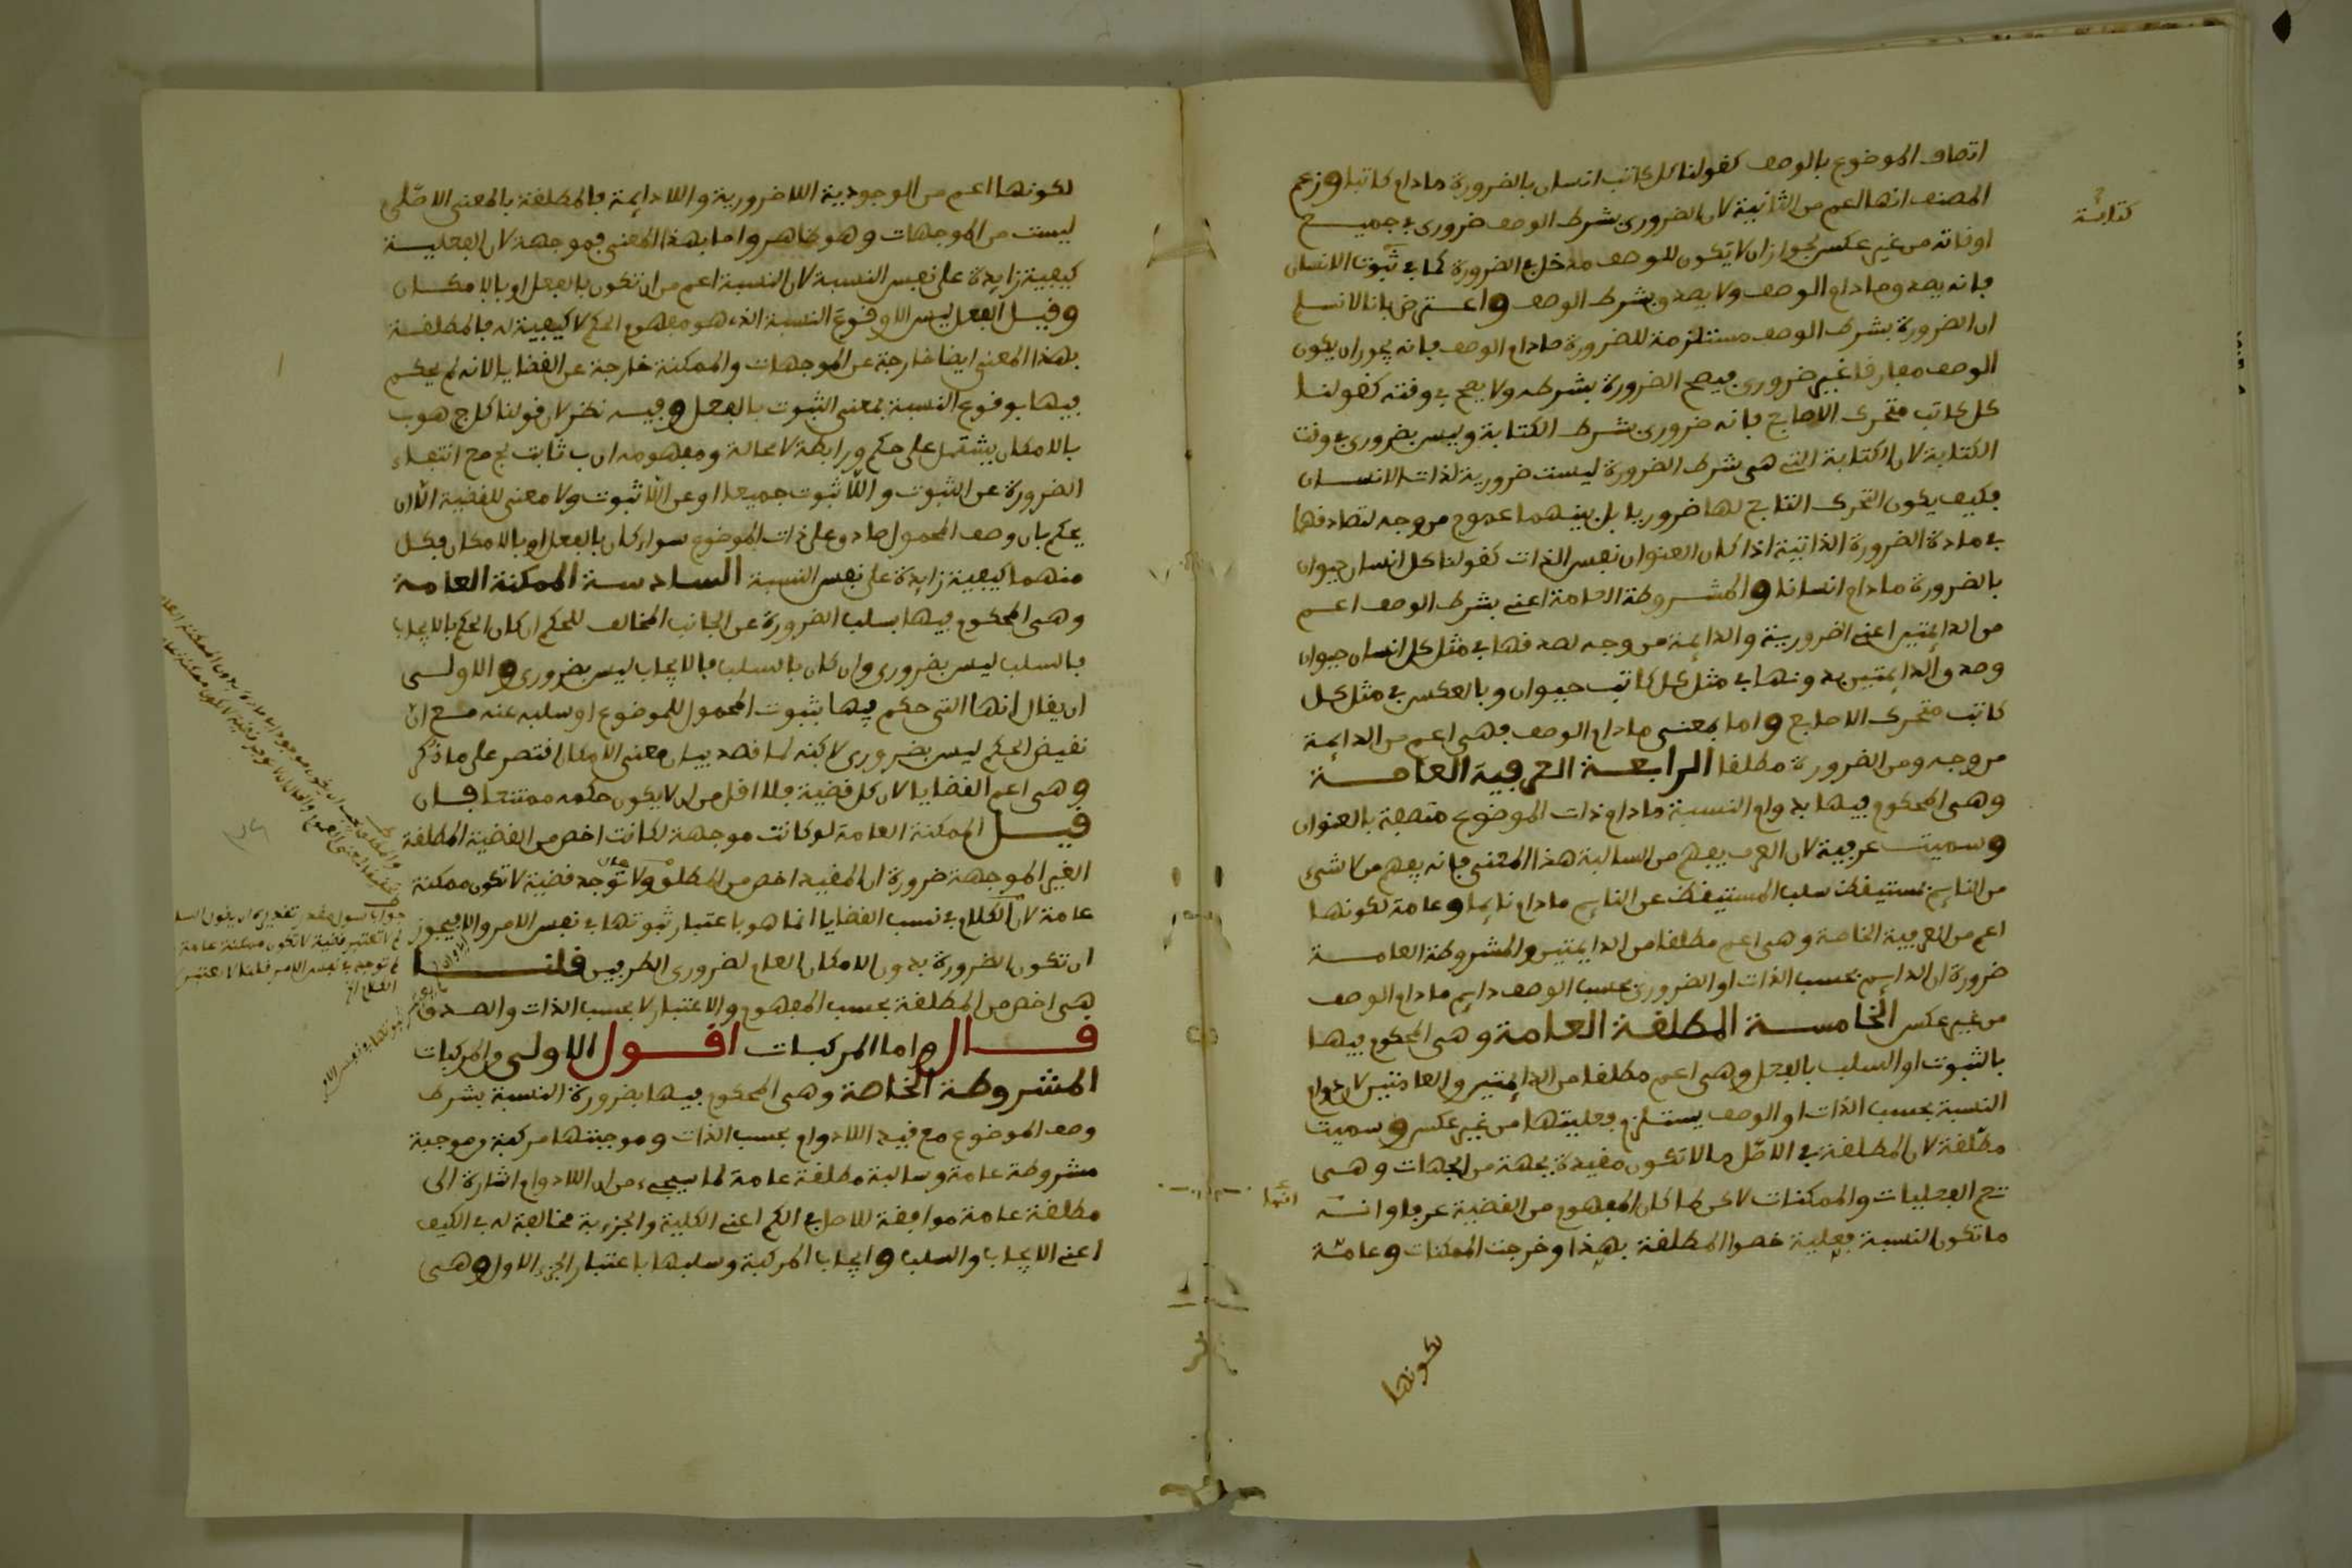 اتصاف الموضوع بالوصف كقولنا كل كاتب انسان بالضرورة مادام كاتبا وزعم
المصنف انها اعم من الثانية لان الضرورى بشرط الوصف ضرورى في جميع
اوقاته من غير عكس لجواز ان لا يكون للوصف مدخل في الضرورة كما في ثبوت الانسان
فانه يصدق مادام الوصف ولا يصدق بشرط الوصف واعترض بانا لا نسلم
ان الضرورة بشرط الوصف مستلزمة للضرورة مادام الوصف فانه يجوز ان يكون
الوصف مفارقا غير ضرورى فيصح الضرورة بشرطه ولا يصح في وقته كقولنا
كل كاتب متحرك الاصابع فانه ضرورى بشرط الكتابة وليس بضرورى في وقت
الكتابة لان الكتابة التي هى شرط الضرورة ليست ضرورية لذات الانسان
فكيف يكون التحرك التابع لها ضروريا بل بينهما عموم من وجه لتصادقهما
في مادة الضرورة الذاتية اذا كان العنوان نفس الذات كقولنا كل انسان حيوان
بالضرورة مادام انسانا والمشروطة العامة اعني بشرط الوصف اعم
من الدائمتين اعني الضرورية والدائمة من وجه لصدقها في مثل كل انسان حيوان
وصدق الدائمتين بدونها في مثل كل كاتب حيوان وبالعكس في مثل كل
كاتب متحرك الاصابع واما بمعنى مادام الوصف فهى اعم من الدائمة
من وجه ومن الضرورة مطلقا الرابعة العرفية العامة
وهى المحكوم فيها بدوام النسبة مادام ذات الموضوع متصفة بالعنوان
وسميت عرفية لان العرف يفهم من السالبة هذا المعنى فانه يفهم من لا شىء
من النايم بمستيقظ سلب المستيقظ عن النايم مادام نايما وعامة لكونها
اعم من العرفية الخاصة وهى اعم مطلقا من الدايمتين والمشروطة العامة
ضرورة ان الدايم بحسب الذات او الضرورى بحسب الوصف دايم مادام الوصف
من غير عكس الخامسة المطلقة العامة وهى المحكوم فيها
بالثبوت او السلب بالفعل وهى اعم مطلقا من الدايمتين والعامتين لان دوام
النسبة بحسب الذات او الوصف يستلزم فعليتها من غير عكس وسميت
مطلقة لان المطلقة في الاصل ما لا تكون مقيدة بجهة من الجهات وهى
تعم الفعليات والممكنات لاكن لما كان المفهوم من القضية عرفا وانه
ما تكون النسبة فعلية خصوا المطلقة بهذا وخرجت الممكنات وعامة
لكونها
لكونها اعم من الوجودية اللا ضرورية واللا دايمة فالمطلقة بالمعنى الاصلى
ليست من الموجهات وهو ظاهر واما بهذا المعنى فموجهة لان الفعلية
كيفية زايدة على نفس النسبة لان النسبة اعم من ان تكون بالفعل او بالامكان
وقيل الفعل ليس الا وقوع النسبة الذى هو مفهوم الحكم لا كيفية له فالمطلقة
بهذا المعنى ايضا خارجة عن الموجهات والممكنة خارجة عن القضايا لانه لم يحكم
فيها بوقوع النسبة بمعنى الثبوت بالفعل وفيه نظر لان قولنا كل ج هو ب
بالامكان يشتمل على حكم ورابطة لا محالة ومفهومه ان ب ثابت لج مع انتفاء
الضرورة عن الثبوت واللا ثبوت جميعا او عن اللا ثبوت ولا معنى للقضية الا ان
يحكم بان وصف المحمول صادق على ذات الموضوع سواء كان بالفعل او بالامكان فكل
منهما كيفية زايدة على نفس النسبة السادسة الممكنة العامة
وهى المحكوم فيها بسلب الضرورة عن الجانب المخالف للحكم ان كان الحكم بالايجاب
فالسلب ليس بضرورى وان كان بالسلب فالايجاب ليس بضرورى والاولى
ان يقال انها التي حكم فيها بثبوت المحمول للموضوع او سلبه عنه مع ان
نقيض الحكم ليس بضرورى لاكنه لما قصد بيان معنى الامكان اقتصر على ما ذكر
وهى اعم القضايا لان كل قضية فلا اقل من ان لا يكون حكمه ممتنعا فان
قيل الممكنة العامة لو كانت موجهة لكانت اخص من القضية المطلقة
الغير الموجهة ضرورة ان المقيد اخص من المطلق ولا توجد قضية لا تكون ممكنة
عامة لان الكلام في نسب القضايا انما هو باعتبار ثبوتها في نفس الامر والا فيجوز
ان تكون الضرورة بدون الامكان العام لضرورى الطرفين قلنا
هى اخص من المطلقة بحسب المفهوم والاعتبار لا بحسب الذات والصدق
قال واما المركبات اقول الاولى والمركبات
المشروطة الخاصة وهى المحكوم فيها بضرورة النسبة بشرط
وصف الموضوع مع قيد اللا دوام بحسب الذات وموجبتها مركبة من موجبة
مشروطة عامة وسالبة مطلقة عامة لما سيجىء من ان اللا دوام اشارة الى
مطلقة عامة موافقة للاصل في الكم اعني الكلية والجزءية مخالفة له في الكيف
اعني الايجاب والسلب وايجاب المركبة وسلبها باعتبار الجزء الاول وهى